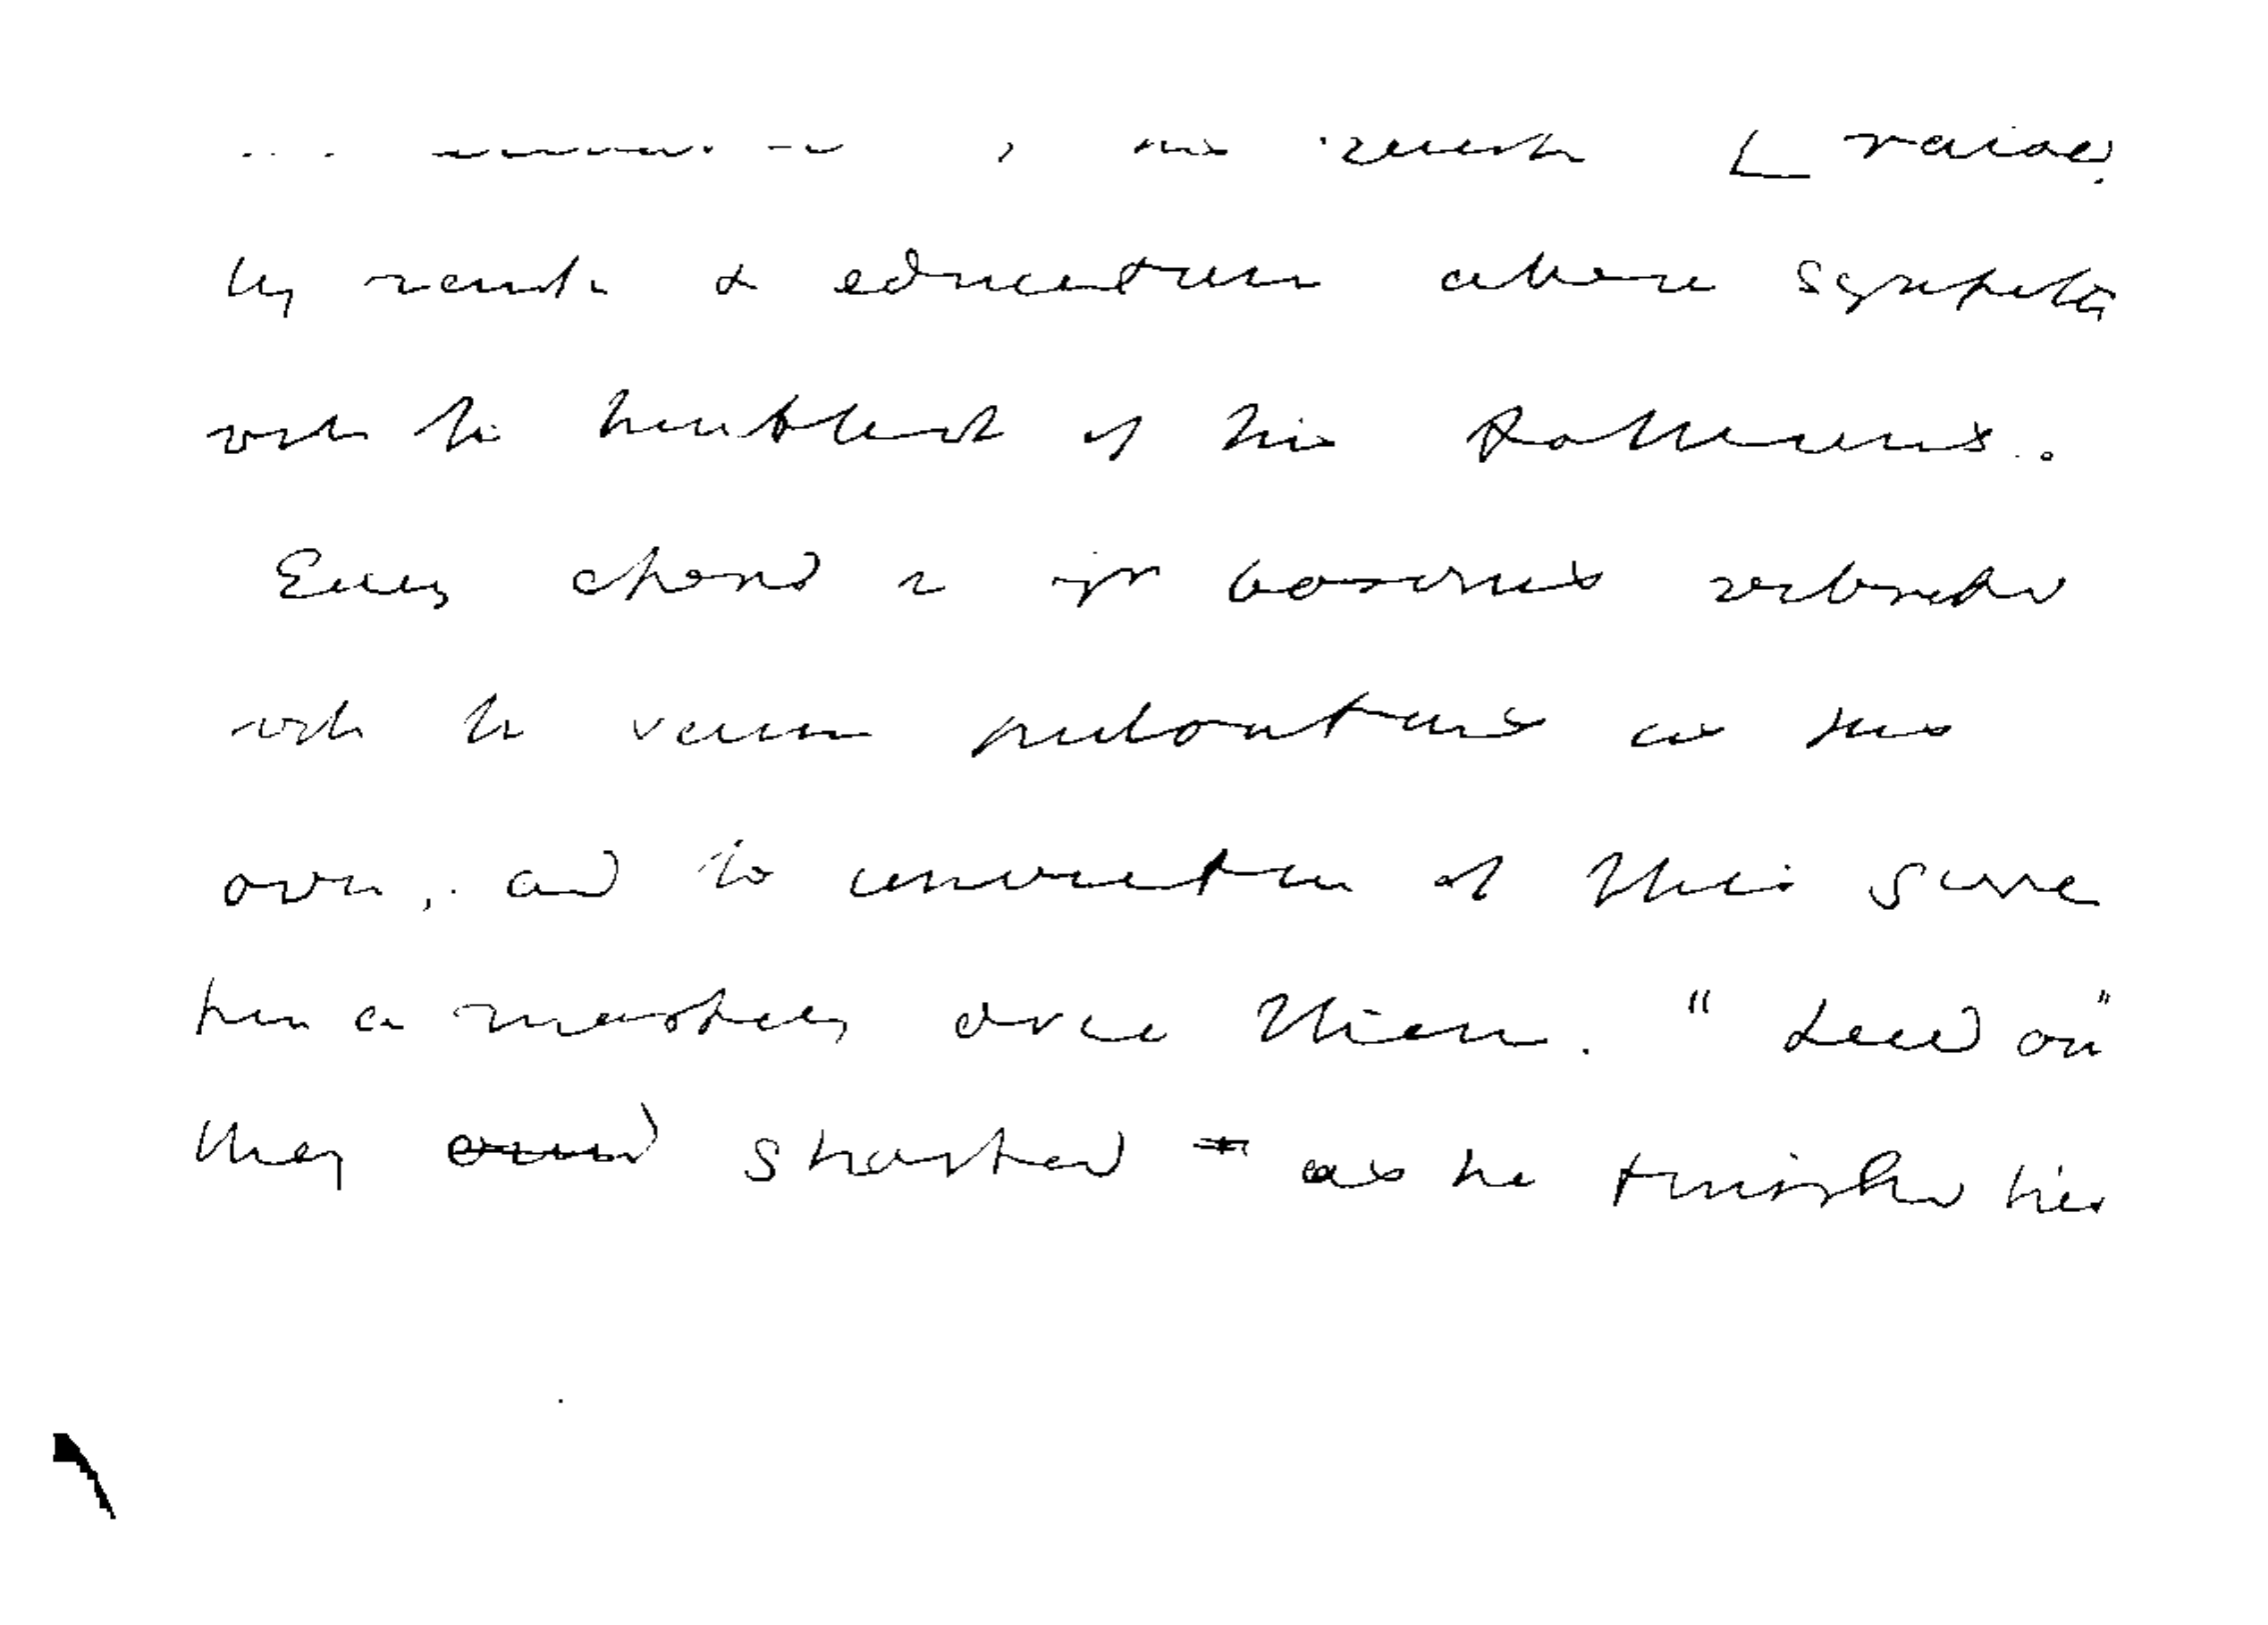 raised
by rank & education above sympathy
with the humblest of his followers.
Every chord in their bosoms vibrated
with the same pulsations as his
own, and the conviction of this gave
him a mastery over them. "Lead on"
they shouted as he finished his